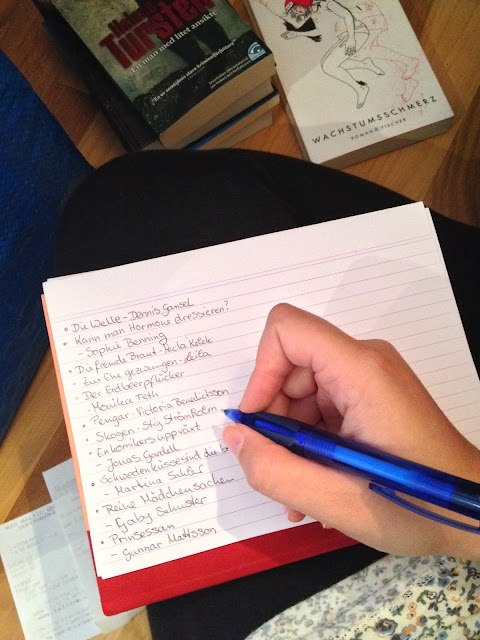 Tursten
En man med litet ansikte
WACHSTUMSSCHMERZ
ROMAN • FISCHER
• Die Welle - Dennis Gansel
• Kann man Hormone dressieren?
- Sophie Benning
• Die fremde Braut - Necla Kelek
• Zur Ehe gezwungen - Leila
• Der Erdbeerpflücker
- Monika Feth
• Pengar - Victoria Benedictsson
• Skogen - Stig Strömholm
• En komikers uppväxt
- Jonas Gardell
• Schwedenküsse sind die
- Martina
• Reine Mädchensachen
- Gaby Schuster
• Prinsessan
- Gunnar Mattsson